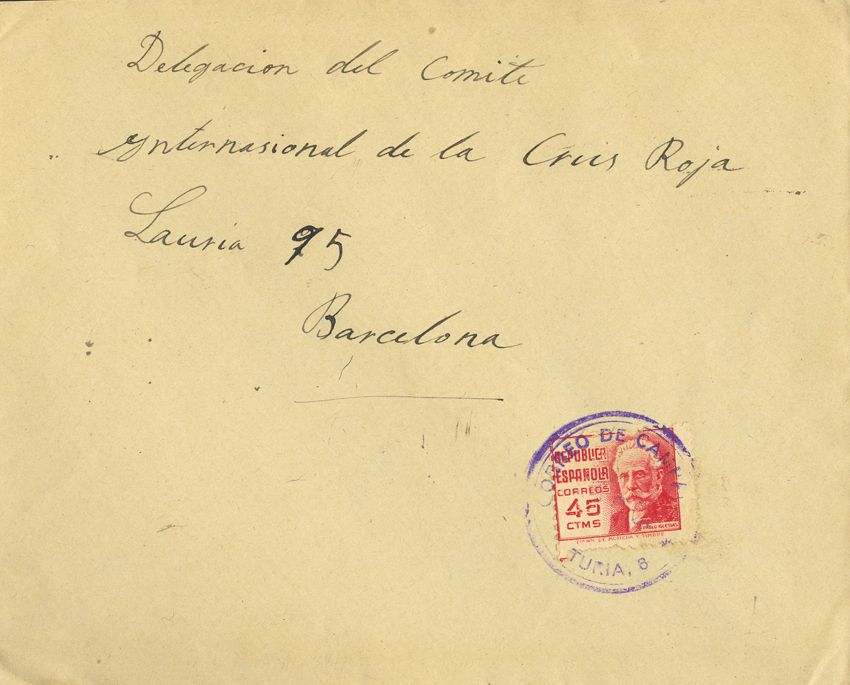 Delegacion del Comite
Ynternasional de la Crus Roja
Lauria 95
Barcelona
CORREO DE CAMPAÑA
REPUBLICA
ESPAÑOLA
CORREOS
45
CTMS
PABLO IGLESIAS
TURIA, 8